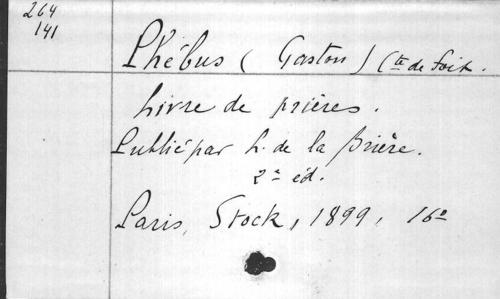 264
141
Phébus (Gaston) Cte de Foix.
Livre de prières.
Publié par L. de la Brière.
2e éd.
Paris, Stock, 1899, 16o